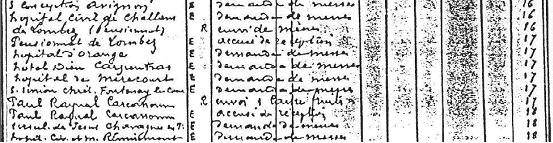 S Conception Avignon E Demande de messes 16
hôpital Civil de Challans E Demande de messes 16
de Lombez (Pensionnat) R envoi de messes 16
Pensionnat de Lombez E accusé de réception 17
hôpital d'Orange E Demande de messes 17
hôtel Dieu Carpentras E Demande de messes 17
hôpital de Mirecourt E Demande de messes 17
S. Union Chrét. Fontenay le Comte E Demande de messes 17
Paul Raynal Carcassonne R envoi 17
Paul Raynal Carcassonne E accusé de réception 18
Ursul. de Jésus Chavagnes E Demande de messes 18
hôpit. Civ. et m. Remiremont E Demande de messes 18